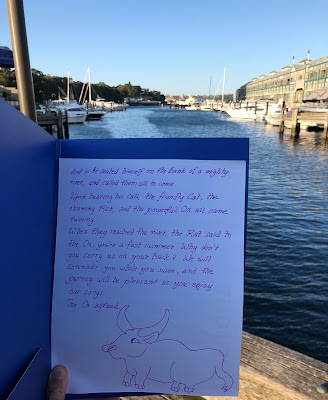 and so he seated himself on the bank of a mighty
river, and called them all to come.
Upon hearing his call, the friendly Cat, the
charming Rat, and the powerful Ox all came
running.
When they reached the river, the Rat said to
the Ox, you're a fast swimmer. Why don't
you carry us on your back? We will
serenade you while you swim, and the
journey will be pleasant as you enjoy
our songs.
The Ox agreed.